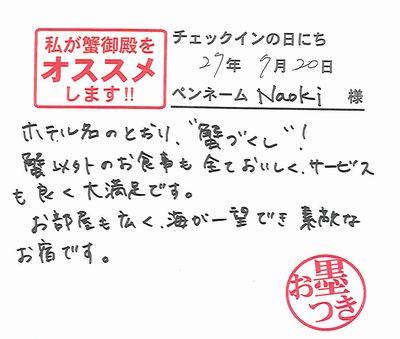 私が蟹御殿を
オススメ
します!!
チェックインの日にち
27年9月20日
ペンネーム Naoki 様
ホテル名のとおり、"蟹づくし"!
蟹以外のお食事も全ておいしく、サービス
も良く大満足です。
お部屋も広く、海が一望でき素敵な
お宿です。
お墨つき